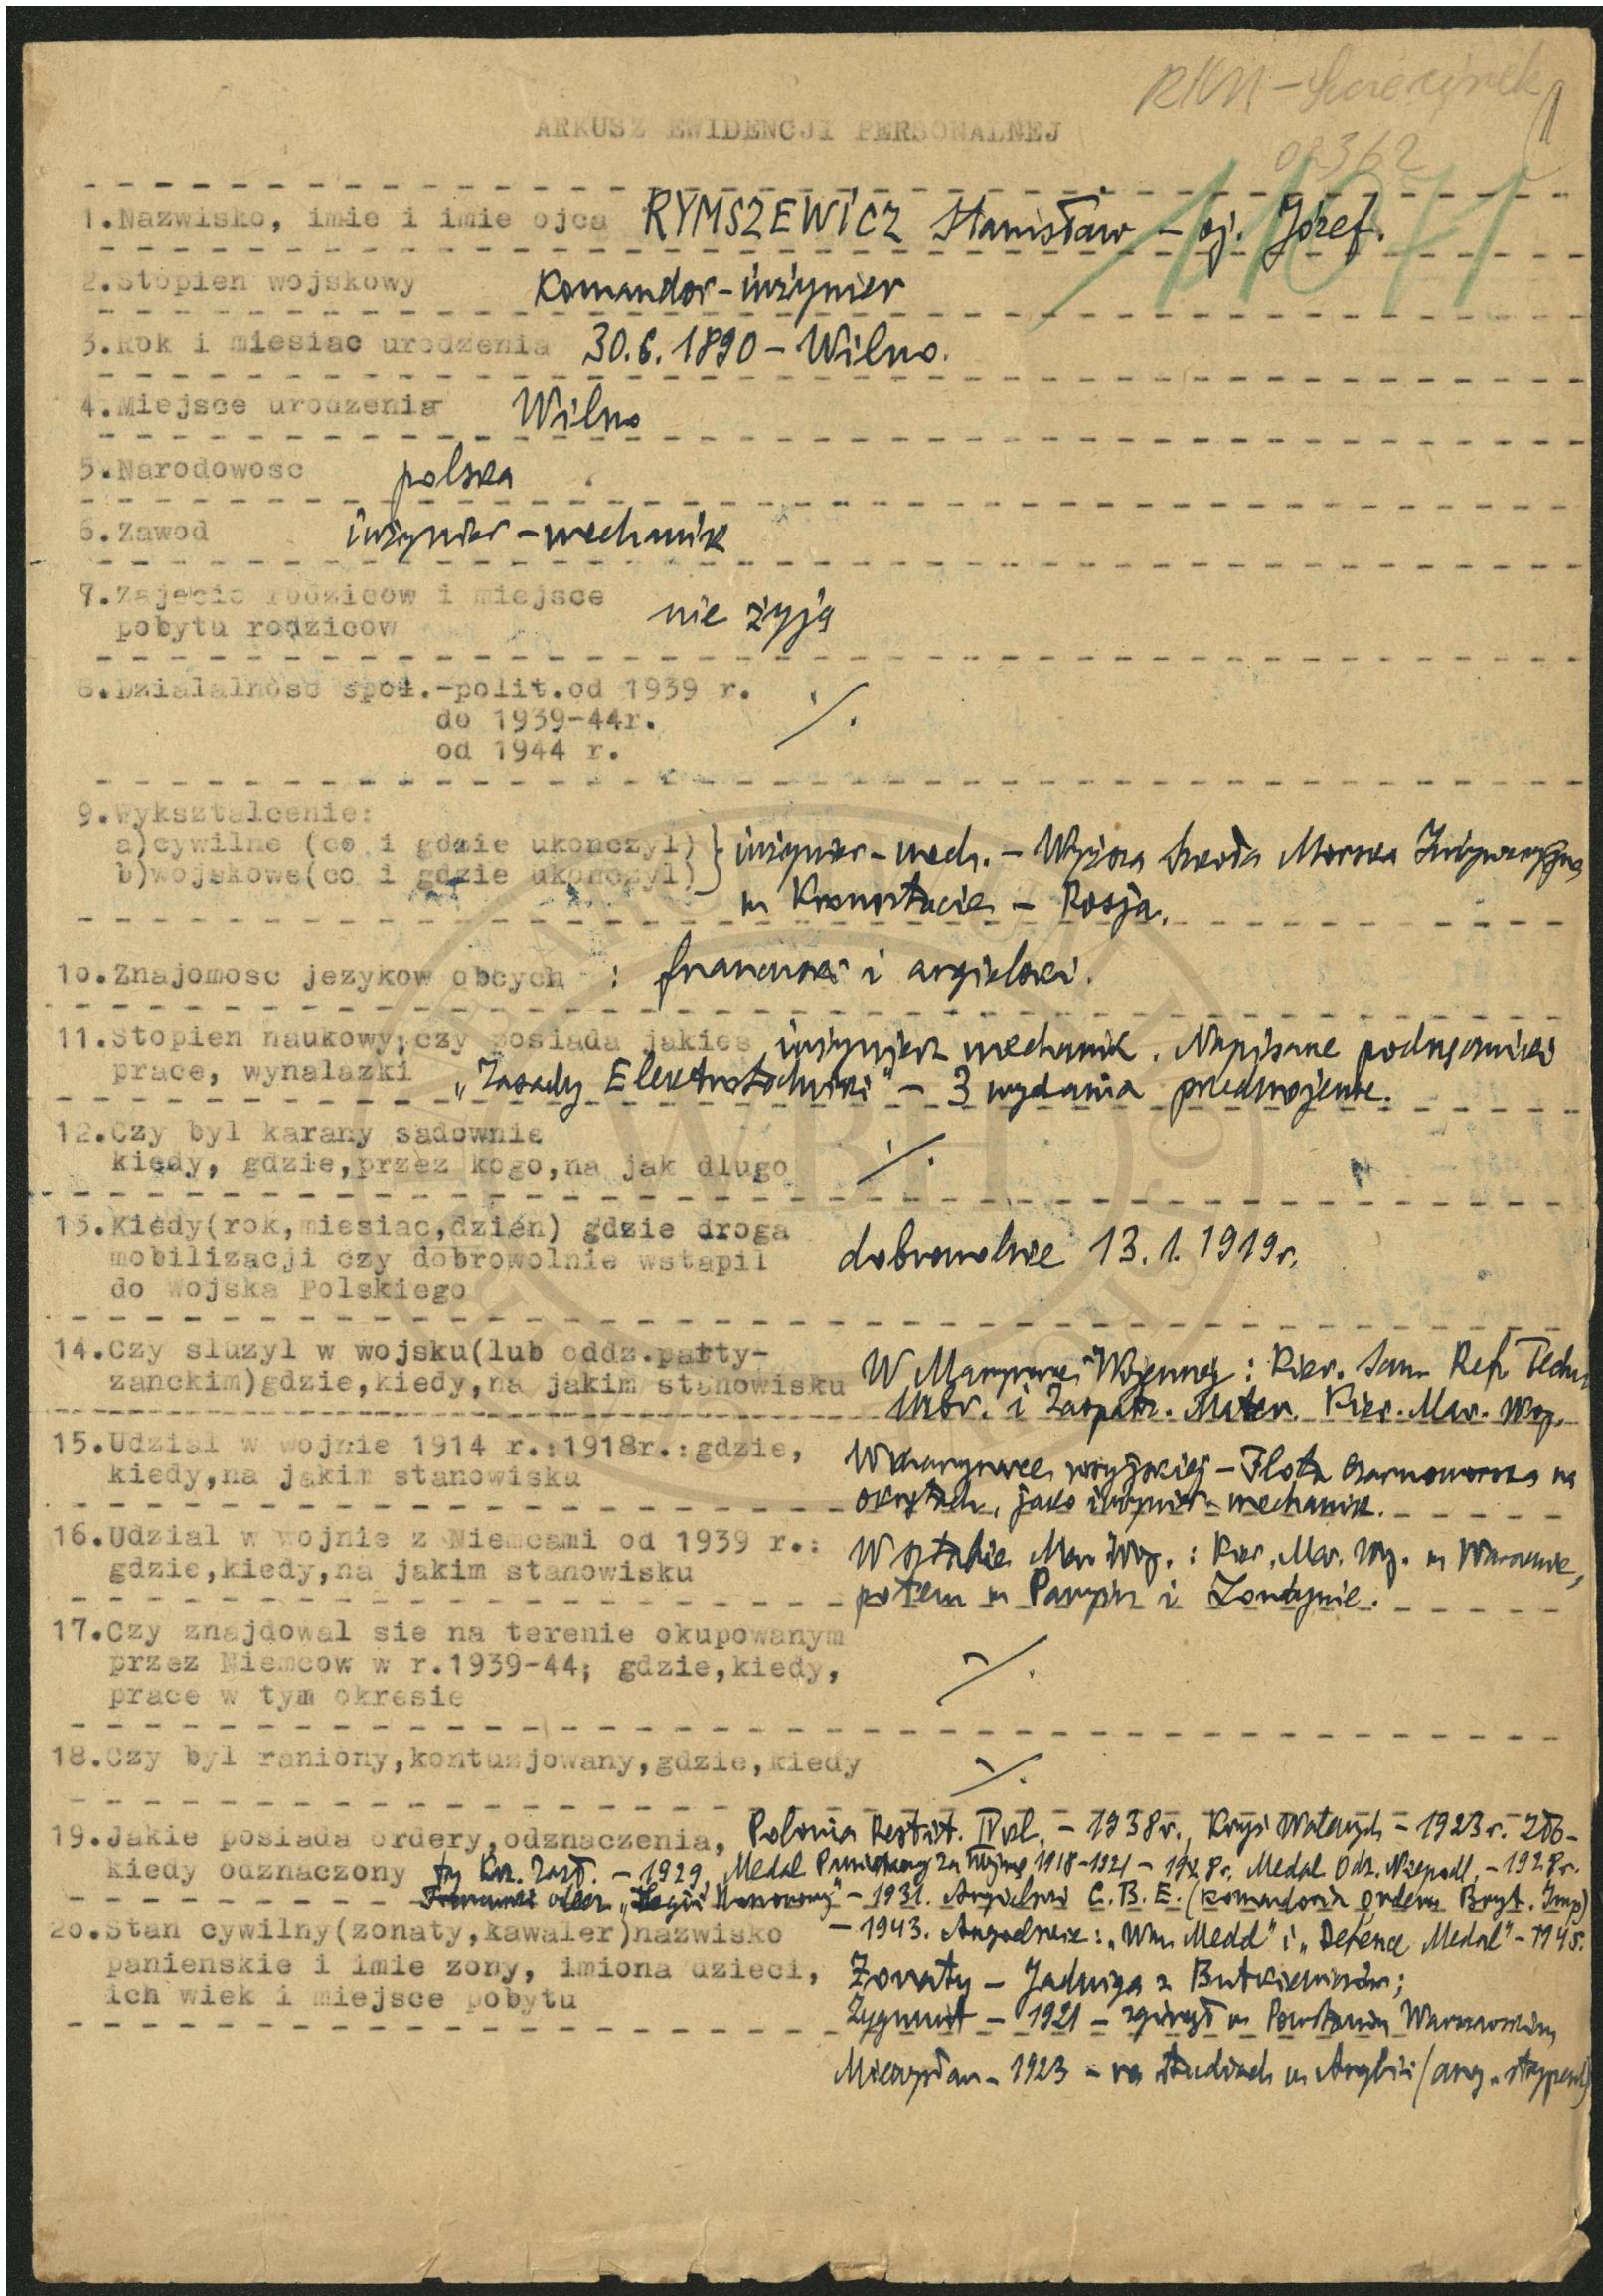 RKU –
02362
ARKUSZ EWIDENCJI PERSONALNEJ
1.Nazwisko, imie i imie ojca RYMSZEWICZ Stanisław – oj. Józef.
2.Stopien wojskowy Komandor – inżynier
3.Rok i miesiac urodzenia 30.6.1890 – Wilno.
4.Miejsce urodzenia Wilno
5.Narodowosc polska
6.Zawod inżynier – mechanik
7.Zajecie rodzicow i miejsce
pobytu rodzicow nie żyją
8.Dzialalnosc społ.-polit.od 1939 r. ·/.
do 1939-44r.
od 1944 r.
9.Wyksztalcenie:
a)cywilne (co i gdzie ukonczyl) } inżynier – mech. – Wyższa Szkoła Morska Inżynieryjna
b)wojskowe(co i gdzie ukonczyl) w Kronsztacie – Rosja.
10.Znajomosc jezykow obcych : francuski i angielski.
11.Stopien naukowy;czy posiada jakies inżynier mechanik. Napisane podręczniki
prace, wynalazki „Zasady Elektrotechniki" – 3 wydania przedwojenne.
12.Czy byl karany sadownie
kiedy, gdzie,przez kogo,na jak dlugo ·/.
13.Kiedy(rok,miesiac,dzien) gdzie droga
mobilizacji czy dobrowolnie wstapil dobrowolnie 13.1.1919r.
do Wojska Polskiego
14.Czy sluzyl w wojsku(lub oddz.party-
zanckim)gdzie,kiedy,na jakim stanowisku W Marynarce Wojennej : Kier. Sam. Ref. Techn.
Uzbr. i Zaopatrz. Mater. Kier. Mar. Woj.
15.Udzial w wojnie 1914 r.:1918r.:gdzie,
kiedy,na jakim stanowisku W marynarce rosyjskiej – Flota Czarnomorska na
okrętach, jako inżynier – mechanik.
16.Udzial w wojnie z Niemcami od 1939 r.:
gdzie,kiedy,na jakim stanowisku W sztabie Mar. Woj. : Kier. Mar. Woj. w Warszawie,
potem w Paryżu i Londynie.
17.Czy znajdowal sie na terenie okupowanym
przez Niemcow w r.1939-44; gdzie,kiedy, ·/.
prace w tym okresie
18.Czy byl raniony,kontuzjowany,gdzie,kiedy ·/.
19.Jakie posiada ordery,odznaczenia, Polonia Restit. IV kl. – 1938r., Krzyż Walecznych – 1923r. Zło-
kiedy odznaczony ty Krz. Zasł. – 1929, Medal Pamiątkowy za Wojnę 1918-1921 – 1928r. Medal Odz. Niepodl. – 1928r.
Francuski order „Legii Honorowej" – 1931. Angielski C.B.E. (komandoria orderu Bryt. Imp)
– 1943. Angielskie : „War Medal" i „Defence Medal" – 1945.
20.Stan cywilny(zonaty,kawaler)nazwisko
panienskie i imie zony, imiona dzieci, Żonaty – Jadwiga z Butkiewiczów;
ich wiek i miejsce pobytu Zygmunt – 1921 – zginął w Powstaniu Warszawskim,
Mieczysław – 1923 – na studiach w Anglii (ang. stypend)